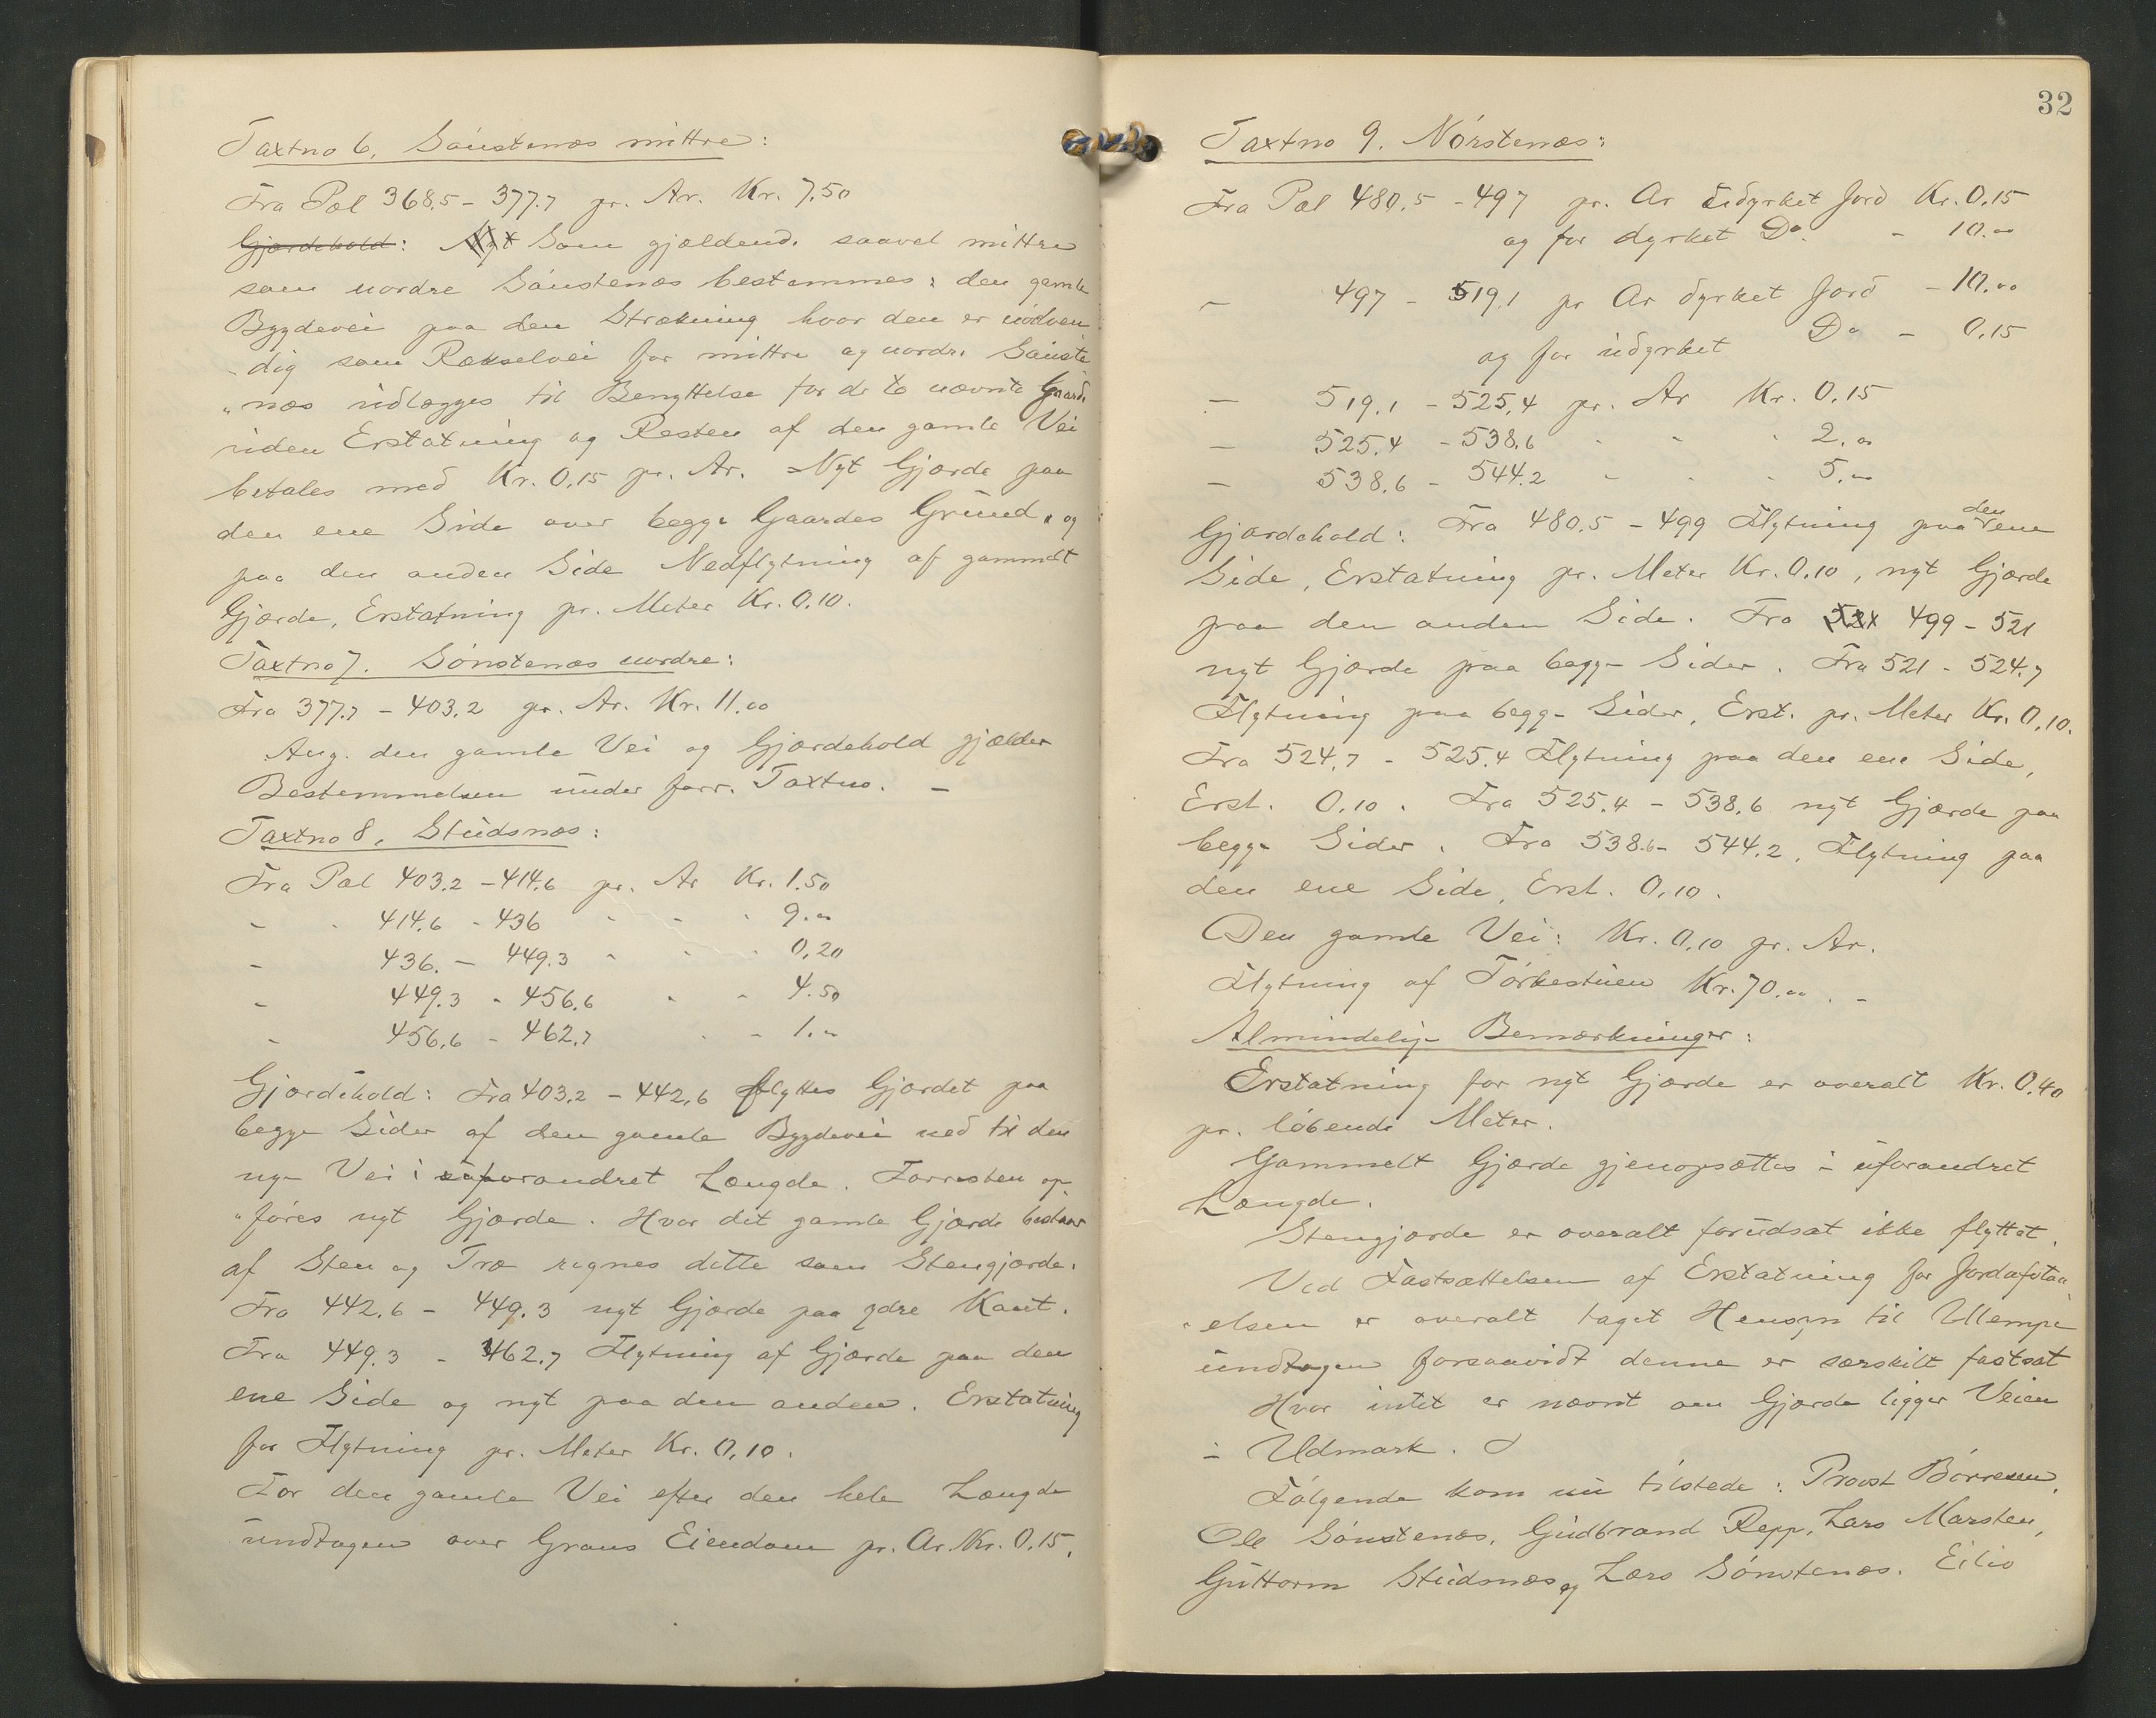 Taxtno 6. Sønstenæs mittre:
Fra Pæl 368.5 - 377.7 pr. Ar. Kr. 7.50
Gjærdehold: Nyt Som gjældende saavel mittre
som nordre Sønstenæs bestemmes: den gamle
Bygdevei paa den Strækning hvor den er nødven
„dig som Rækselvei for mittre og nordre Sønste
„næs udlægges til Benyttelse for de to nævnte Gaarde
uden Erstatning og Resten af den gamle Vei
betales med Kr. 0.15 pr. Ar. Nyt Gjærde paa
den ene Side over begge Gaardes Grund, og
paa den anden Side Nedflytning af gammelt
Gjærde, Erstatning pr. Meter Kr. 0.10.
Taxtno 7. Sønstenæs nordre:
Fra 377.7 - 403.2 pr. Ar. Kr. 11.00
Ang. den gamle Vei og Gjærdehold gjælder
Bestemmelsen under forr. Taxtno. -
Taxtno 8. Studsnæs:
Fra Pæl 403.2 - 414.6 pr. Ar Kr. 1.50
- - 414.6 - 436 - - - 9.00
- 436. - 449.3 - - - 0.20
- 449.3 - 456.6 - - 4.50
- 456.6 - 462.7 - - 1.00
Gjærdehold: Fra 403.2 - 442.6 flyttes Gjærdet paa
begge Sider af den gamle Bygdevei ned til den
nye Vei i uforandret Længde. Forresten op
„føres nyt Gjærde. Hvor det gamle Gjærde bestaar
af Sten og Træ regnes dette som Stengjærde.
Fra 442.6 - 449.3 nyt Gjærde paa ydre Kant.
Fra 449.3 - 462.7 Flytning af Gjærde paa den
ene Side og nyt paa den anden. Erstatning
for Flytning pr. Meter Kr. 0.10.
For den gamle Vei efter den hele Længde
undtagen over Grans Eiendom pr. Ar. Kr. 0.15.
32
Taxtno 9. Nørstenæs:
Fra Pæl 480.5 - 497 pr. Ar udyrket Jord Kr. 0.15
og for dyrket Do. - 10.00
- 497 - 519.1 pr Ar dyrket Jord - 10.00
og for udyrket Do - 0.15
- 519.1 - 525.4 pr. Ar Kr. 0.15
- 525.4 - 538.6 - - - 2.00
- 538.6 - 544.2 - - - 5.00
Gjærdehold: Fra 480.5 - 499 Flytning paa den ene
Side, Erstatning pr. Meter Kr. 0.10, nyt Gjærde
paa den anden Side. Fra 499 - 521
nyt Gjærde paa begge Sider. Fra 521 - 524.7
Flytning paa begge Sider, Erst. pr. Meter Kr. 0.10.
Fra 524.7 - 525.4 Flytning paa den ene Side,
Erst. 0.10. Fra 525.4 - 538.6 nyt Gjærde paa
begge Sider. Fra 538.6 - 544.2, Flytning paa
den ene Side, Erst. 0.10.
Den gamle Vei: Kr. 0.10 pr. Ar.
Flytning af Tørkestuen Kr. 70.00. -
Almindelige Bemærkninger:
Erstatning for nyt Gjærde er overalt Kr. 0.40
pr. løbende Meter.
Gammelt Gjærde gjenopsættes i uforandret
Længde.
Stengjærde er overalt forudsat ikke flyttet.
Ved Fastsættelsen af Erstatning for Jordafstaa
„elsen er overalt taget Hensyn til Ulempe
undtagen forsaavidt denne er særskilt fastsat
Hvor intet er nævnt om Gjærde ligger Veien
i Udmark.
Følgende kom nu tilstede: Provst Børresen,
Ole Sønstenæs, Gudbrand Repp, Lars Marsten,
Guttorm Studsnæs og Lars Sønstenæs. Eiliv